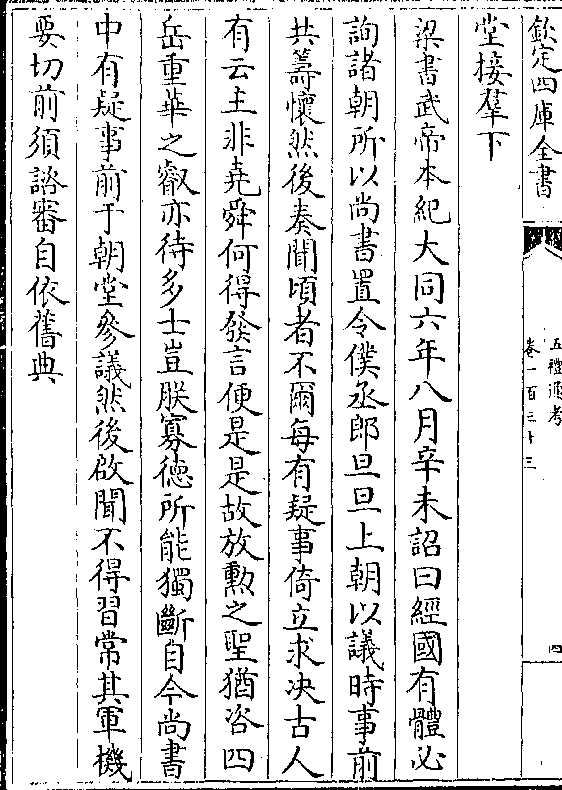 欽定四庫全書
五禮通考
卷一百三十三
四
堂接羣下
梁書武帝本紀大同六年八月辛未詔曰經國有體必
詢諸朝所以尚書置令僕丞郎旦旦上朝以議時事前
共籌懷然後奏聞頃者不爾每有疑事倚立求決古人
有云主非堯舜何得發言便是是故放勲之聖猶咨四
岳重華之叡亦待多士豈朕寡德所能獨斷自今尚書
中有疑事前于朝堂參議然後啟聞不得習常其軍機
要切前須諮審自依舊典